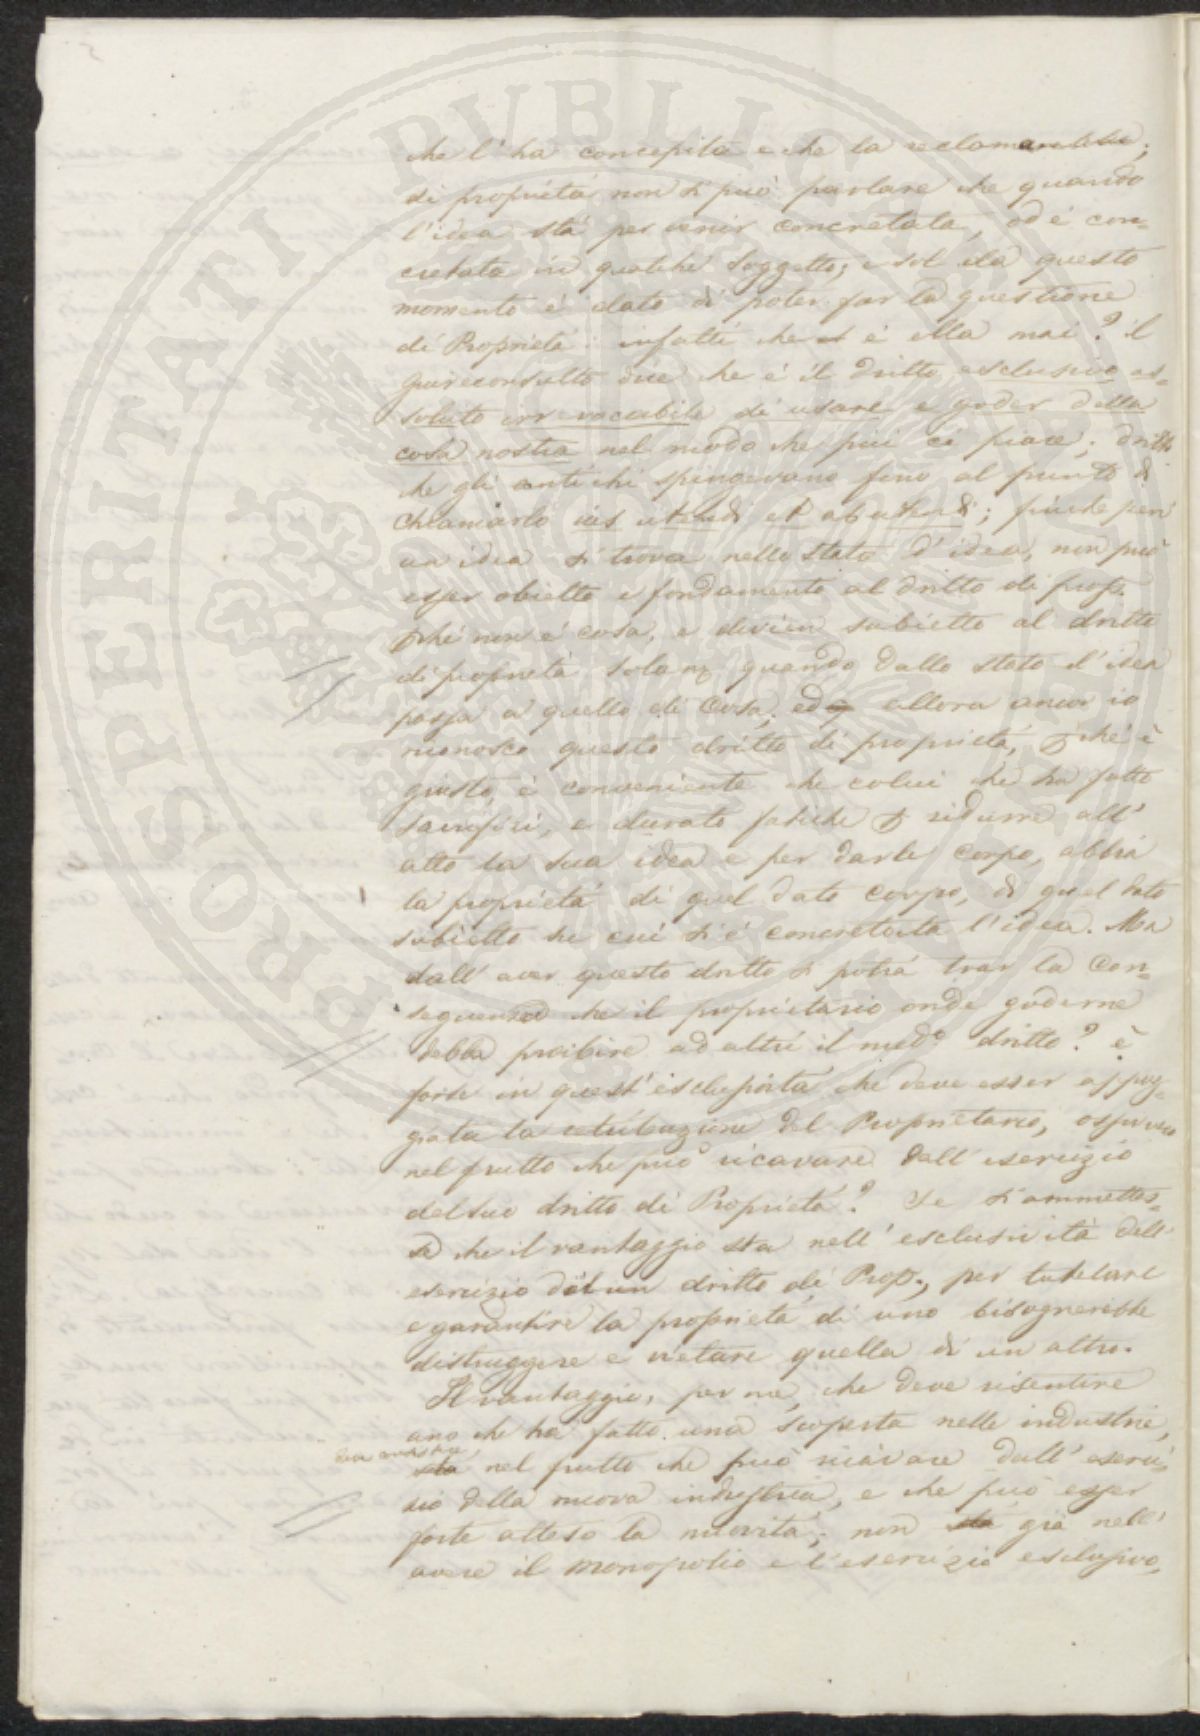 PROSPERITATI PUBLICAE
che l'ha concepita e che la reclama
di proprietá non si può parlare che quando
l'idea stá per venir concretata, od é con=
cretata in qualche soggetto; e sol da questo
momento é dato di poter far la questione
di Proprietá: infatti che é ella mai? il
giureconsulto dice che é il dritto esclusivo as=
soluto irrevocabile di usare e goder della
cosa nostra nel modo che piú ci piace; dritto
che gli antichi spingevano fino al punto di
chiamarlo ius utendi et abutendi; finche peró
un idea si trova nello stato d'idea, non puó
esser obietto e fondamento al dritto di prop.
pché non é cosa, e divien subietto al dritto
di proprietá solam quando dallo stato d'idea
passa a quello di Cosa; ed allora ancor io
riconosco questo dritto di proprietá, pché é
giusto, é conveniente che colui che ha fatto
sacrifizi, e durato fatiche p ridurre all'
atto la sua idea e per darle corpo, abbia
la proprietá di quel dato corpo, di quel dato
subietto in cui si é concretata l'idea. Ma
dall' aver questo dritto si potrá trar la Con=
seguenza che il proprietario onde goderne
debba proibire ad altri il medo dritto? é
forse in quest' esclusivitá che deve esser appog=
giata la retribuzione del Proprietario, ossivvero
nel frutto che può ricavare dall' esercizio
del suo dritto di Proprietá? Se si ammettes=
se che il vantaggio sta nell' esclusivitá dell'
esercizio di un dritto di Prop., per tutelare
e garantire la proprietá di uno bisognerebbe
distruggere e vietare quella di un altro.
Il vantaggio, per me, che deve risentire
uno che ha fatto una scoperta nelle industrie,
sta nel frutto che puó ricavare dall' eserci=
zio della nuova industria, e che puó esser
forte atteso la novitá; non sta giá nell'
avere il monopolio e l'esercizio esclusivo,